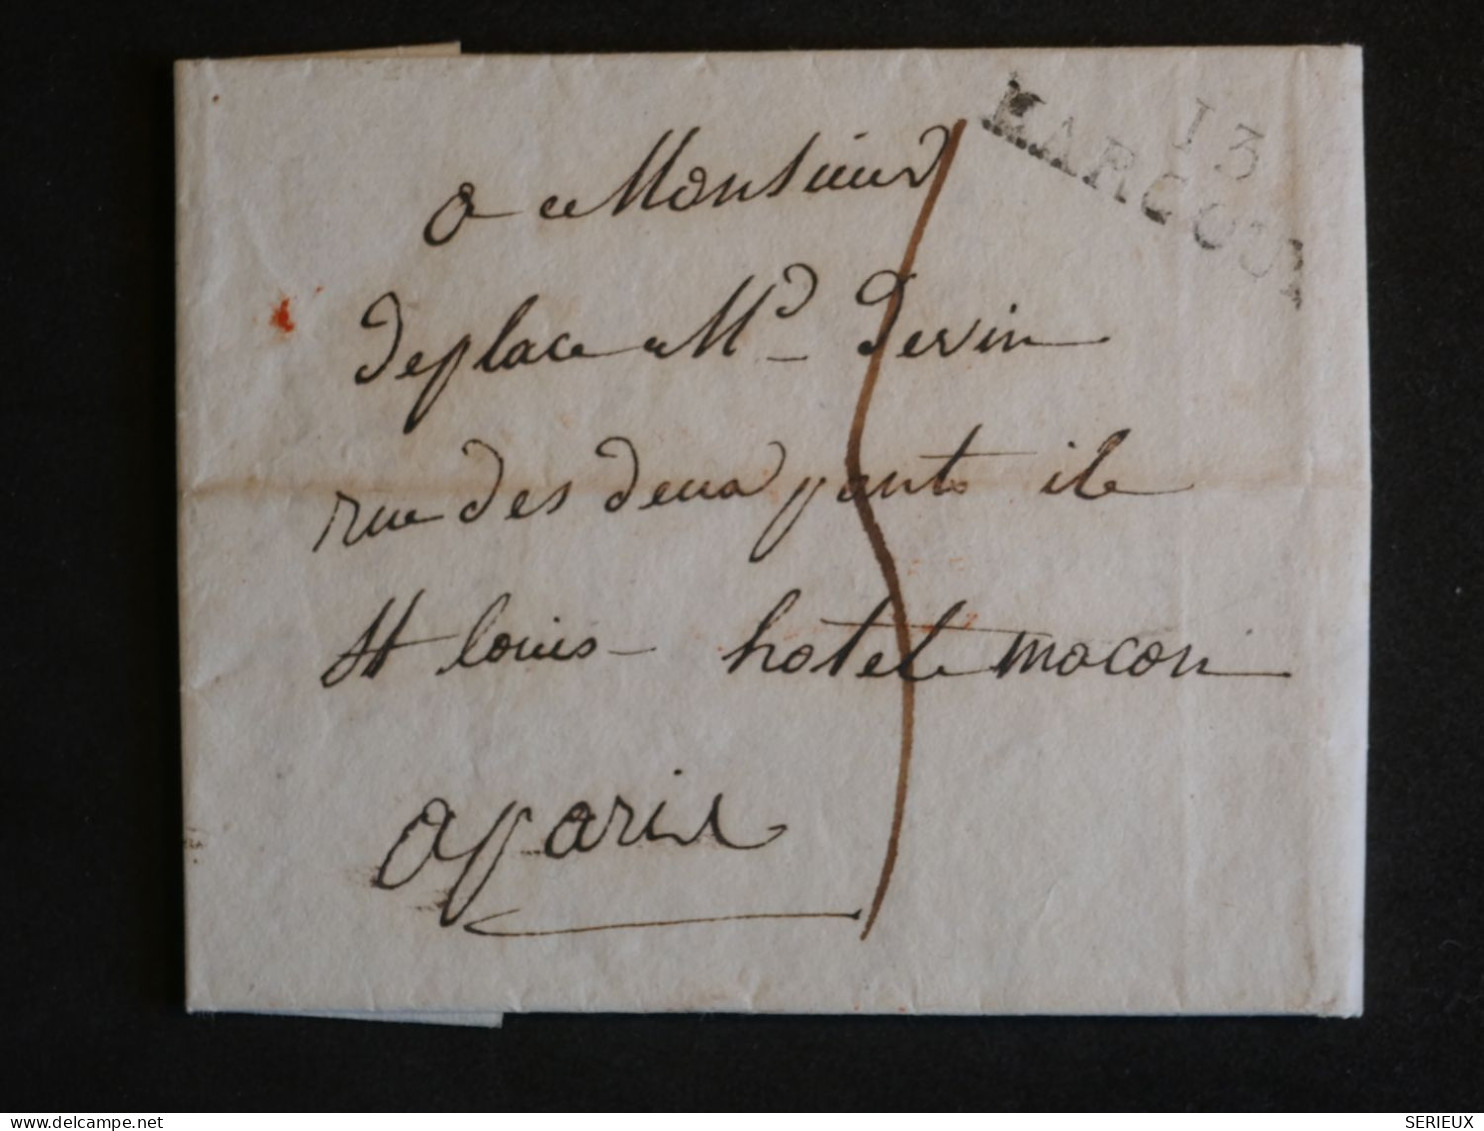 13
MARCOU
a Monsieur
deplace Md devin
rue des deux ponts ile
St louis - hotel macon
a paris
delcampe.net
SERIEUX